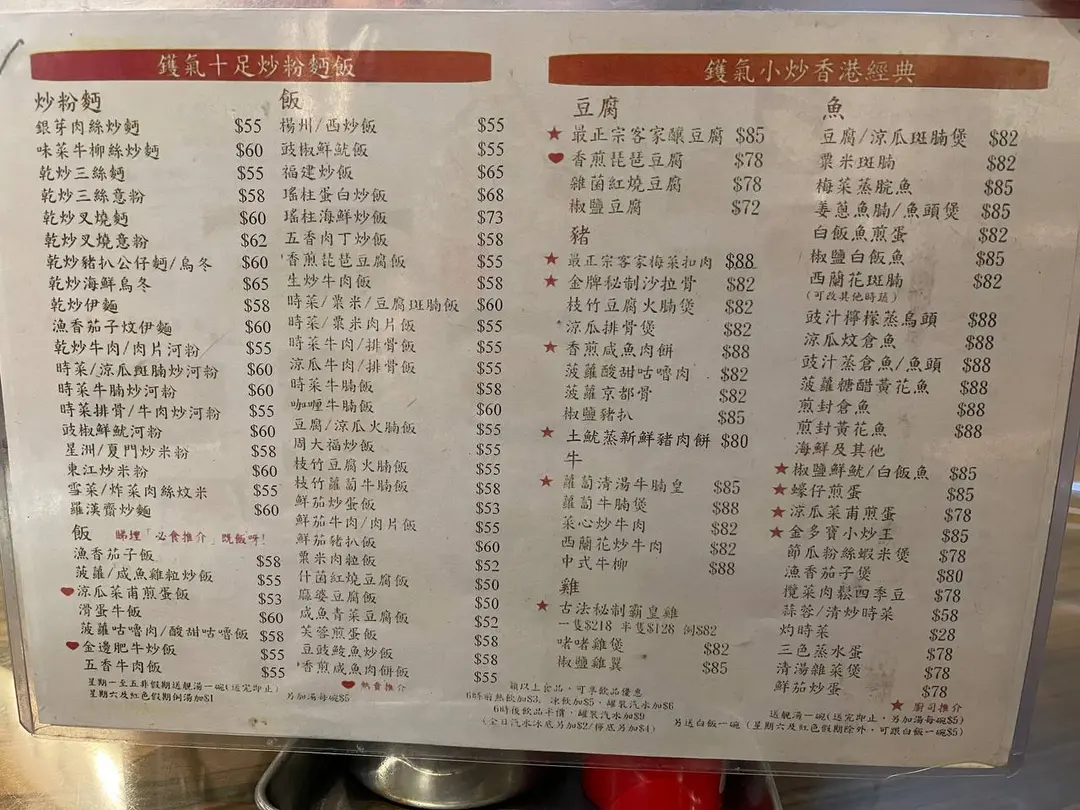 鑊氣十足炒粉麵飯
炒粉麵
銀芽肉絲炒麵 $55
味菜牛柳絲炒麵 $60
乾炒三絲麵 $55
乾炒三絲意粉 $58
乾炒叉燒麵 $60
乾炒叉燒意粉 $62
乾炒豬扒公仔麵/烏冬 $60
乾炒海鮮烏冬 $65
乾炒伊麵 $58
漁香茄子炆伊麵 $60
乾炒牛肉/肉片河粉 $55
時菜/涼瓜斑腩炒河粉 $60
時菜牛腩炒河粉 $58
時菜排骨/牛肉炒河粉 $55
豉椒鮮魷河粉 $60
星洲/廈門炒米粉 $58
東江炒米粉 $60
雪菜/炸菜肉絲炆米 $55
羅漢齋炒麵 $60
飯 睇埋「必食推介」既飯呀!
漁香茄子飯 $58
菠蘿/咸魚雞粒炒飯 $55
涼瓜菜甫煎蛋飯 $53
滑蛋牛飯 $60
菠蘿咕嚕肉/酸甜咕嚕飯 $58
金邊肥牛炒飯 $55
五香牛肉飯 $55
星期一至五非假期送靚湯一碗(送完即止)
星期六及紅色假期例湯加$1
飯
楊州/西炒飯 $55
豉椒鮮魷飯 $55
福建炒飯 $65
瑤柱蛋白炒飯 $68
瑤柱海鮮炒飯 $73
五香肉丁炒飯 $58
香煎琵琶豆腐飯 $55
生炒牛肉飯 $58
時菜/粟米/豆腐斑腩飯 $60
時菜/粟米肉片飯 $55
時菜牛肉/排骨飯 $55
涼瓜牛肉/排骨飯 $55
時菜牛腩飯 $58
咖喱牛腩飯 $60
豆腐/涼瓜火腩飯 $55
周大福炒飯 $55
枝竹豆腐火腩飯 $55
枝竹蘿蔔牛腩飯 $58
鮮茄炒蛋飯 $53
鮮茄牛肉/肉片飯 $55
鮮茄豬扒飯 $60
粟米肉粒飯 $52
什菌紅燒豆腐飯 $50
麻婆豆腐飯 $50
咸魚青菜豆腐飯 $52
芙蓉煎蛋飯 $58
豆豉鯪魚炒飯 $58
香煎咸魚肉餅飯 $55
另加湯每碗$5
熱賣推介
鑊氣小炒香港經典
豆腐
最正宗客家釀豆腐 $85
香煎琵琶豆腐 $78
雜菌紅燒豆腐 $78
椒鹽豆腐 $72
豬
最正宗客家梅菜扣肉 $88
金牌秘制沙拉骨 $82
枝竹豆腐火腩煲 $82
涼瓜排骨煲 $82
香煎咸魚肉餅 $88
菠蘿酸甜咕嚕肉 $82
菠蘿京都骨 $82
椒鹽豬扒 $85
土魷蒸新鮮豬肉餅 $80
牛
蘿蔔清湯牛腩皇 $85
蘿蔔牛腩煲 $88
菜心炒牛肉 $82
西蘭花炒牛肉 $82
中式牛柳 $88
雞
古法秘制霸皇雞
一隻$218 半隻$128 例$82
啫啫雞煲 $82
椒鹽雞翼 $85
魚
豆腐/涼瓜斑腩煲 $82
粟米斑腩 $82
梅菜蒸脘魚 $85
姜蔥魚腩/魚頭煲 $85
白飯魚煎蛋 $82
椒鹽白飯魚 $85
西蘭花斑腩 $82
(可改其他時蔬)
豉汁檸檬蒸烏頭 $88
涼瓜炆倉魚 $88
豉汁蒸倉魚/魚頭 $88
菠蘿糖醋黃花魚 $88
煎封倉魚 $88
煎封黃花魚 $88
海鮮及其他
椒鹽鮮魷/白飯魚 $85
蠔仔煎蛋 $85
涼瓜菜甫煎蛋 $78
金多寶小炒王 $85
節瓜粉絲蝦米煲 $78
漁香茄子煲 $80
欖菜肉鬆四季豆 $78
蒜蓉/清炒時菜 $58
灼時菜 $28
三色蒸水蛋 $78
清湯雜菜煲 $78
鮮茄炒蛋 $78
廚司推介
以上食品,可享飲品優惠
6時前熱飲加$3, 凍飲加$5,罐裝汽水加$6
6時後飲品半價,罐裝汽水加$9
(全日汽水冰底另加$2/檸底另加$4)
送靚湯一碗(送完即止,另加湯每碗$5)
另送白飯一碗(星期六及紅色假期除外,可跟白飯一碗$5)